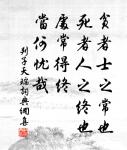 貧者士之常也
死者人之終也
處常得終
當何忧哉
列子天瑞詞典網集